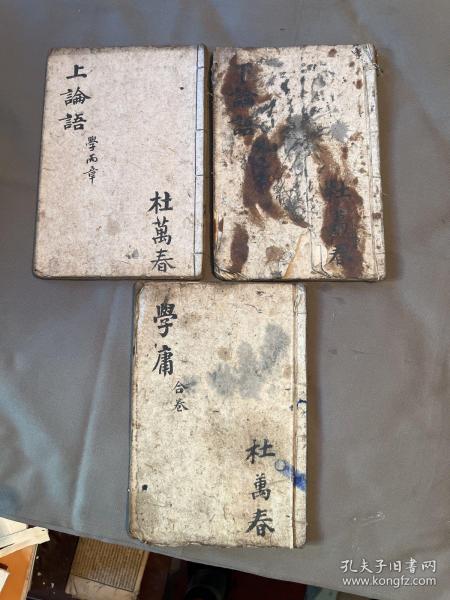 上論語
學而章
杜萬春
下論語
杜萬春
學庸
合卷
杜萬春
孔夫子旧书网
www.kongfz.com